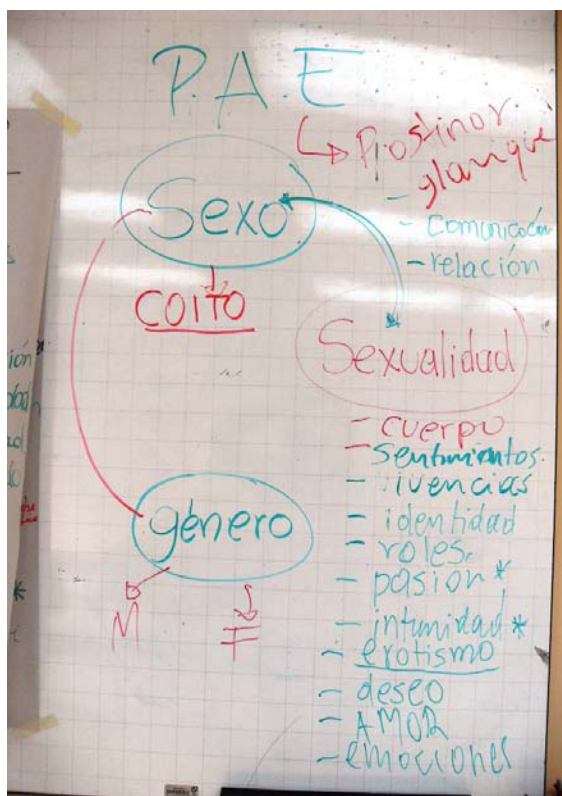 P.A.E
Postinor.
glanique
Sexo
- comunicación
- relación
COITO
Sexualidad
- cuerpo
- sentimientos.
- vivencias
género
- identidad
- roles.
- pasión *
M
F
- intimidad *
- erotismo
- deseo
- AMOR
- emociones
ión